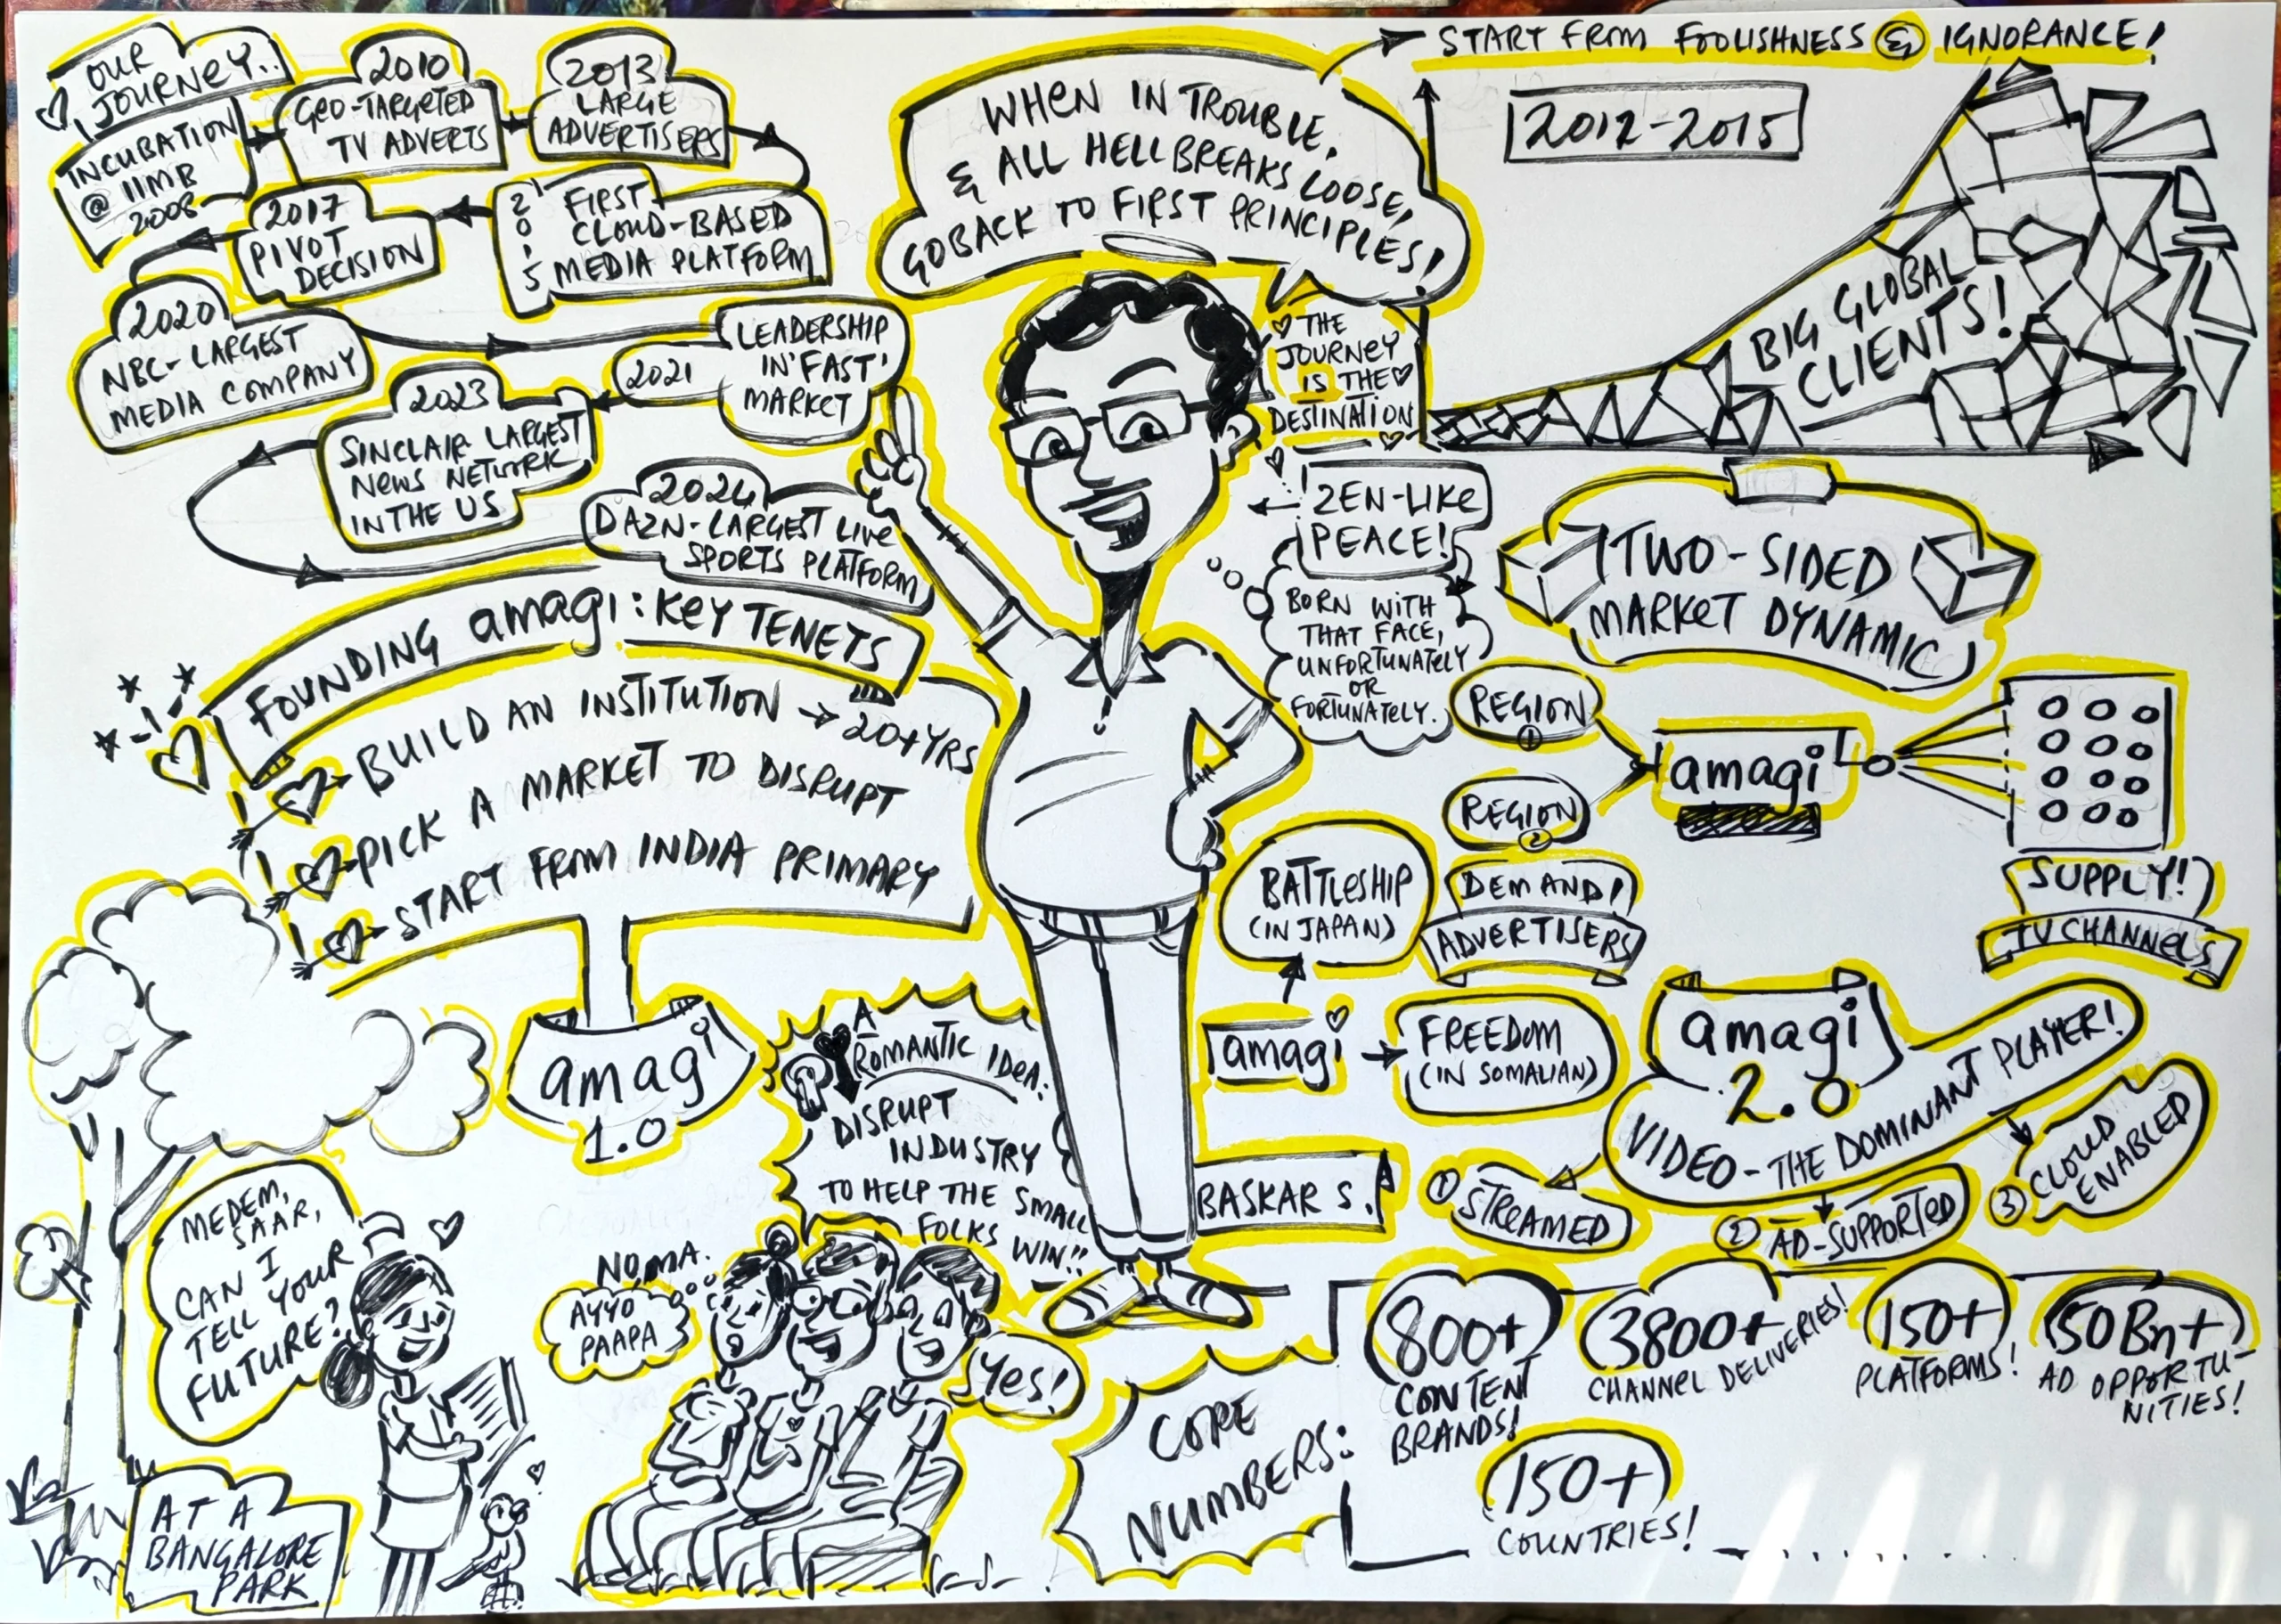 OUR
JOURNEY..
INCUBATION
@ IIMB
2008
2010
GEO-TARGETED
TV ADVERTS
2013
LARGE
ADVERTISERS
2015
FIRST
CLOUD-BASED
MEDIA PLATFORM
2017
PIVOT
DECISION
2020
NBC-LARGEST
MEDIA COMPANY
2021
LEADERSHIP
IN 'FAST'
MARKET
2023
SINCLAIR LARGEST
NEWS NETWORK
IN THE US
2024
DAZN-LARGEST LIVE
SPORTS PLATFORM
WHEN IN TROUBLE,
& ALL HELL BREAKS LOOSE,
GO BACK TO FIRST PRINCIPLES!
START FROM FOOLISHNESS & IGNORANCE!
2012-2015
BIG GLOBAL
CLIENTS!
THE
JOURNEY
IS THE
DESTINATION
ZEN-LIKE
PEACE!
BORN WITH
THAT FACE,
UNFORTUNATELY
OR
FORTUNATELY.
FOUNDING amagi: KEY TENETS
BUILD AN INSTITUTION → 20+YRS
PICK A MARKET TO DISRUPT
START FROM INDIA PRIMARY
amagi
1.0
TWO-SIDED
MARKET DYNAMIC
REGION
1
REGION
2
amagi
DEMAND!
ADVERTISERS
SUPPLY!
TV CHANNELS
BATTLESHIP
(IN JAPAN)
amagi → FREEDOM
(IN SOMALIAN)
amagi
2.0
VIDEO-THE DOMINANT PLAYER!
1 STREAMED
2 AD-SUPPORTED
3 CLOUD
ENABLED
A
ROMANTIC IDEA:
DISRUPT
INDUSTRY
TO HELP THE SMALL
FOLKS WIN!!
BASKAR S.
MEDEM,
SAAR,
CAN I
TELL YOUR
FUTURE?
NO MA.
AYYO
PAAPA
YES!
AT A
BANGALORE
PARK
CORE
NUMBERS:
800+
CONTENT
BRANDS!
3800+
CHANNEL DELIVERIES!
150+
PLATFORMS!
50Bn+
AD OPPORTU-
NITIES!
150+
COUNTRIES!